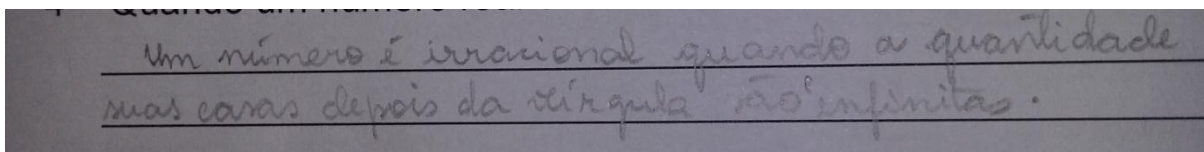 Um número é irracional quando a quantidade
suas casas depois da vírgula são infinitas.